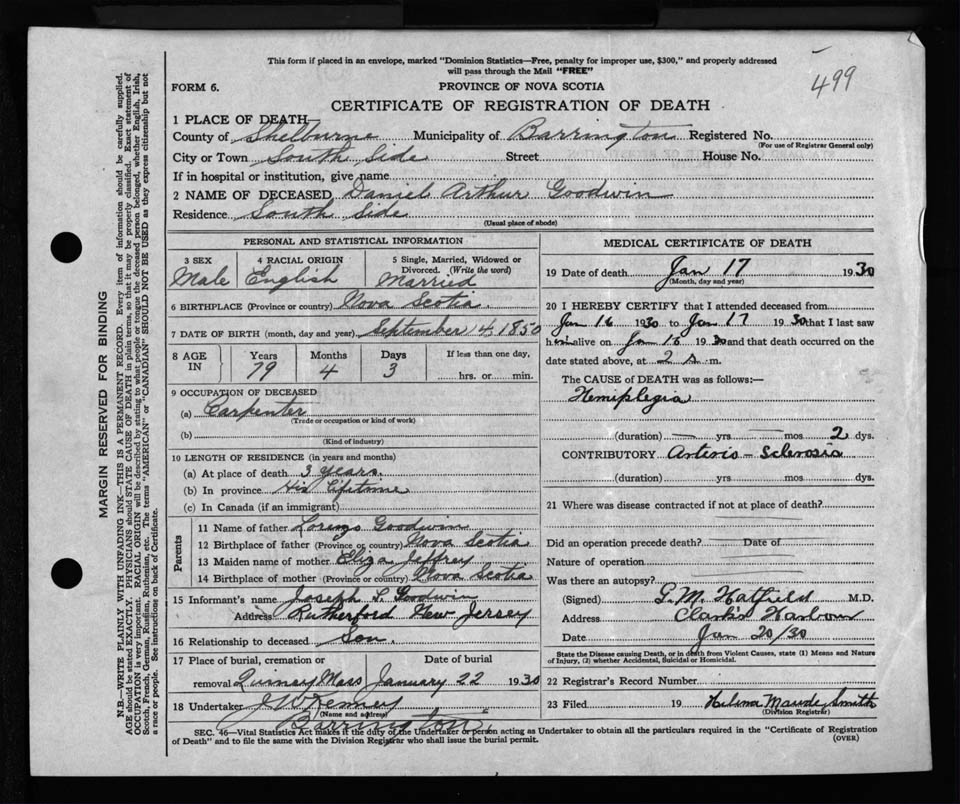 This form if placed in an envelope, marked "Dominion Statistics—Free, penalty for improper use, $300," and properly addressed
will pass through the Mail "FREE"
499
FORM 6.
PROVINCE OF NOVA SCOTIA
CERTIFICATE OF REGISTRATION OF DEATH
1 PLACE OF DEATH
County of Shelburne Municipality of Barrington Registered No.
(For use of Registrar General only)
City or Town South Side Street House No.
If in hospital or institution, give name
2 NAME OF DECEASED Daniel Arthur Goodwin
Residence South Side
(Usual place of abode)
PERSONAL AND STATISTICAL INFORMATION
3 SEX
Male
4 RACIAL ORIGIN
English
5 Single, Married, Widowed or
Divorced. (Write the word)
Married
6 BIRTHPLACE (Province or country) Nova Scotia.
7 DATE OF BIRTH (month, day and year) September 4, 1850
8 AGE
IN
Years
79
Months
4
Days
3
If less than one day,
hrs. or min.
9 OCCUPATION OF DECEASED
(a) Carpenter
(Trade or occupation or kind of work)
(b)
(Kind of industry)
10 LENGTH OF RESIDENCE (in years and months)
(a) At place of death 3 years.
(b) In province His Lifetime
(c) In Canada (if an immigrant)
Parents
11 Name of father Lorenzo Goodwin
12 Birthplace of father (Province or country) Nova Scotia
13 Maiden name of mother Eliza Jeffrey
14 Birthplace of mother (Province or country) Nova Scotia
15 Informant's name Joseph L. Goodwin
Address Rutherford New Jersey
16 Relationship to deceased Son.
17 Place of burial, cremation or
removal Quincy Mass
Date of burial
January 22 1930
18 Undertaker J W Kenney
(Name and address)
Barrington
MEDICAL CERTIFICATE OF DEATH
19 Date of death Jan 17 1930
(Month, day and year)
20 I HEREBY CERTIFY that I attended deceased from
Jan 16 1930 to Jan 17 1930 that I last saw
him alive on Jan 16 1930 and that death occurred on the
date stated above, at 2 a. m.
The CAUSE OF DEATH was as follows:—
Hemiplegia
(duration) — yrs — mos 2 dys.
CONTRIBUTORY Arterio-Sclerosis
(duration) yrs. mos. dys.
21 Where was disease contracted if not at place of death?
Did an operation precede death? Date of
Nature of operation
Was there an autopsy?
(Signed) G. M. Hatfield M.D.
Address Clark's Harbour
Date Jan 20/30
State the Disease causing Death, or in death from Violent Causes, state (1) Means and Nature
of Injury, (2) whether Accidental, Suicidal or Homicidal.
22 Registrar's Record Number
23 Filed 19 Helena Maude Smith
(Division Registrar)
SEC. 46—Vital Statistics Act makes it the duty of the Undertaker or person acting as Undertaker to obtain all the particulars required in the "Certificate of Registration
of Death" and to file the same with the Division Registrar who shall issue the burial permit.
(OVER)
MARGIN RESERVED FOR BINDING
N.B.—WRITE PLAINLY WITH UNFADING INK—THIS IS A PERMANENT RECORD. Every item of information should be carefully supplied.
AGE should be stated EXACTLY. PHYSICIANS should STATE CAUSE OF DEATH in plain terms, so that it may be properly classified. Exact statement of
OCCUPATION is very important. RACIAL ORIGIN will be described by stating to what people or tongue the deceased person belonged, whether English, Irish,
Scotch, French, German, Russian, Ruthenian, etc. The terms "AMERICAN" or "CANADIAN" SHOULD NOT BE USED as they express citizenship but not
a race or people. See instructions on back of Certificate.